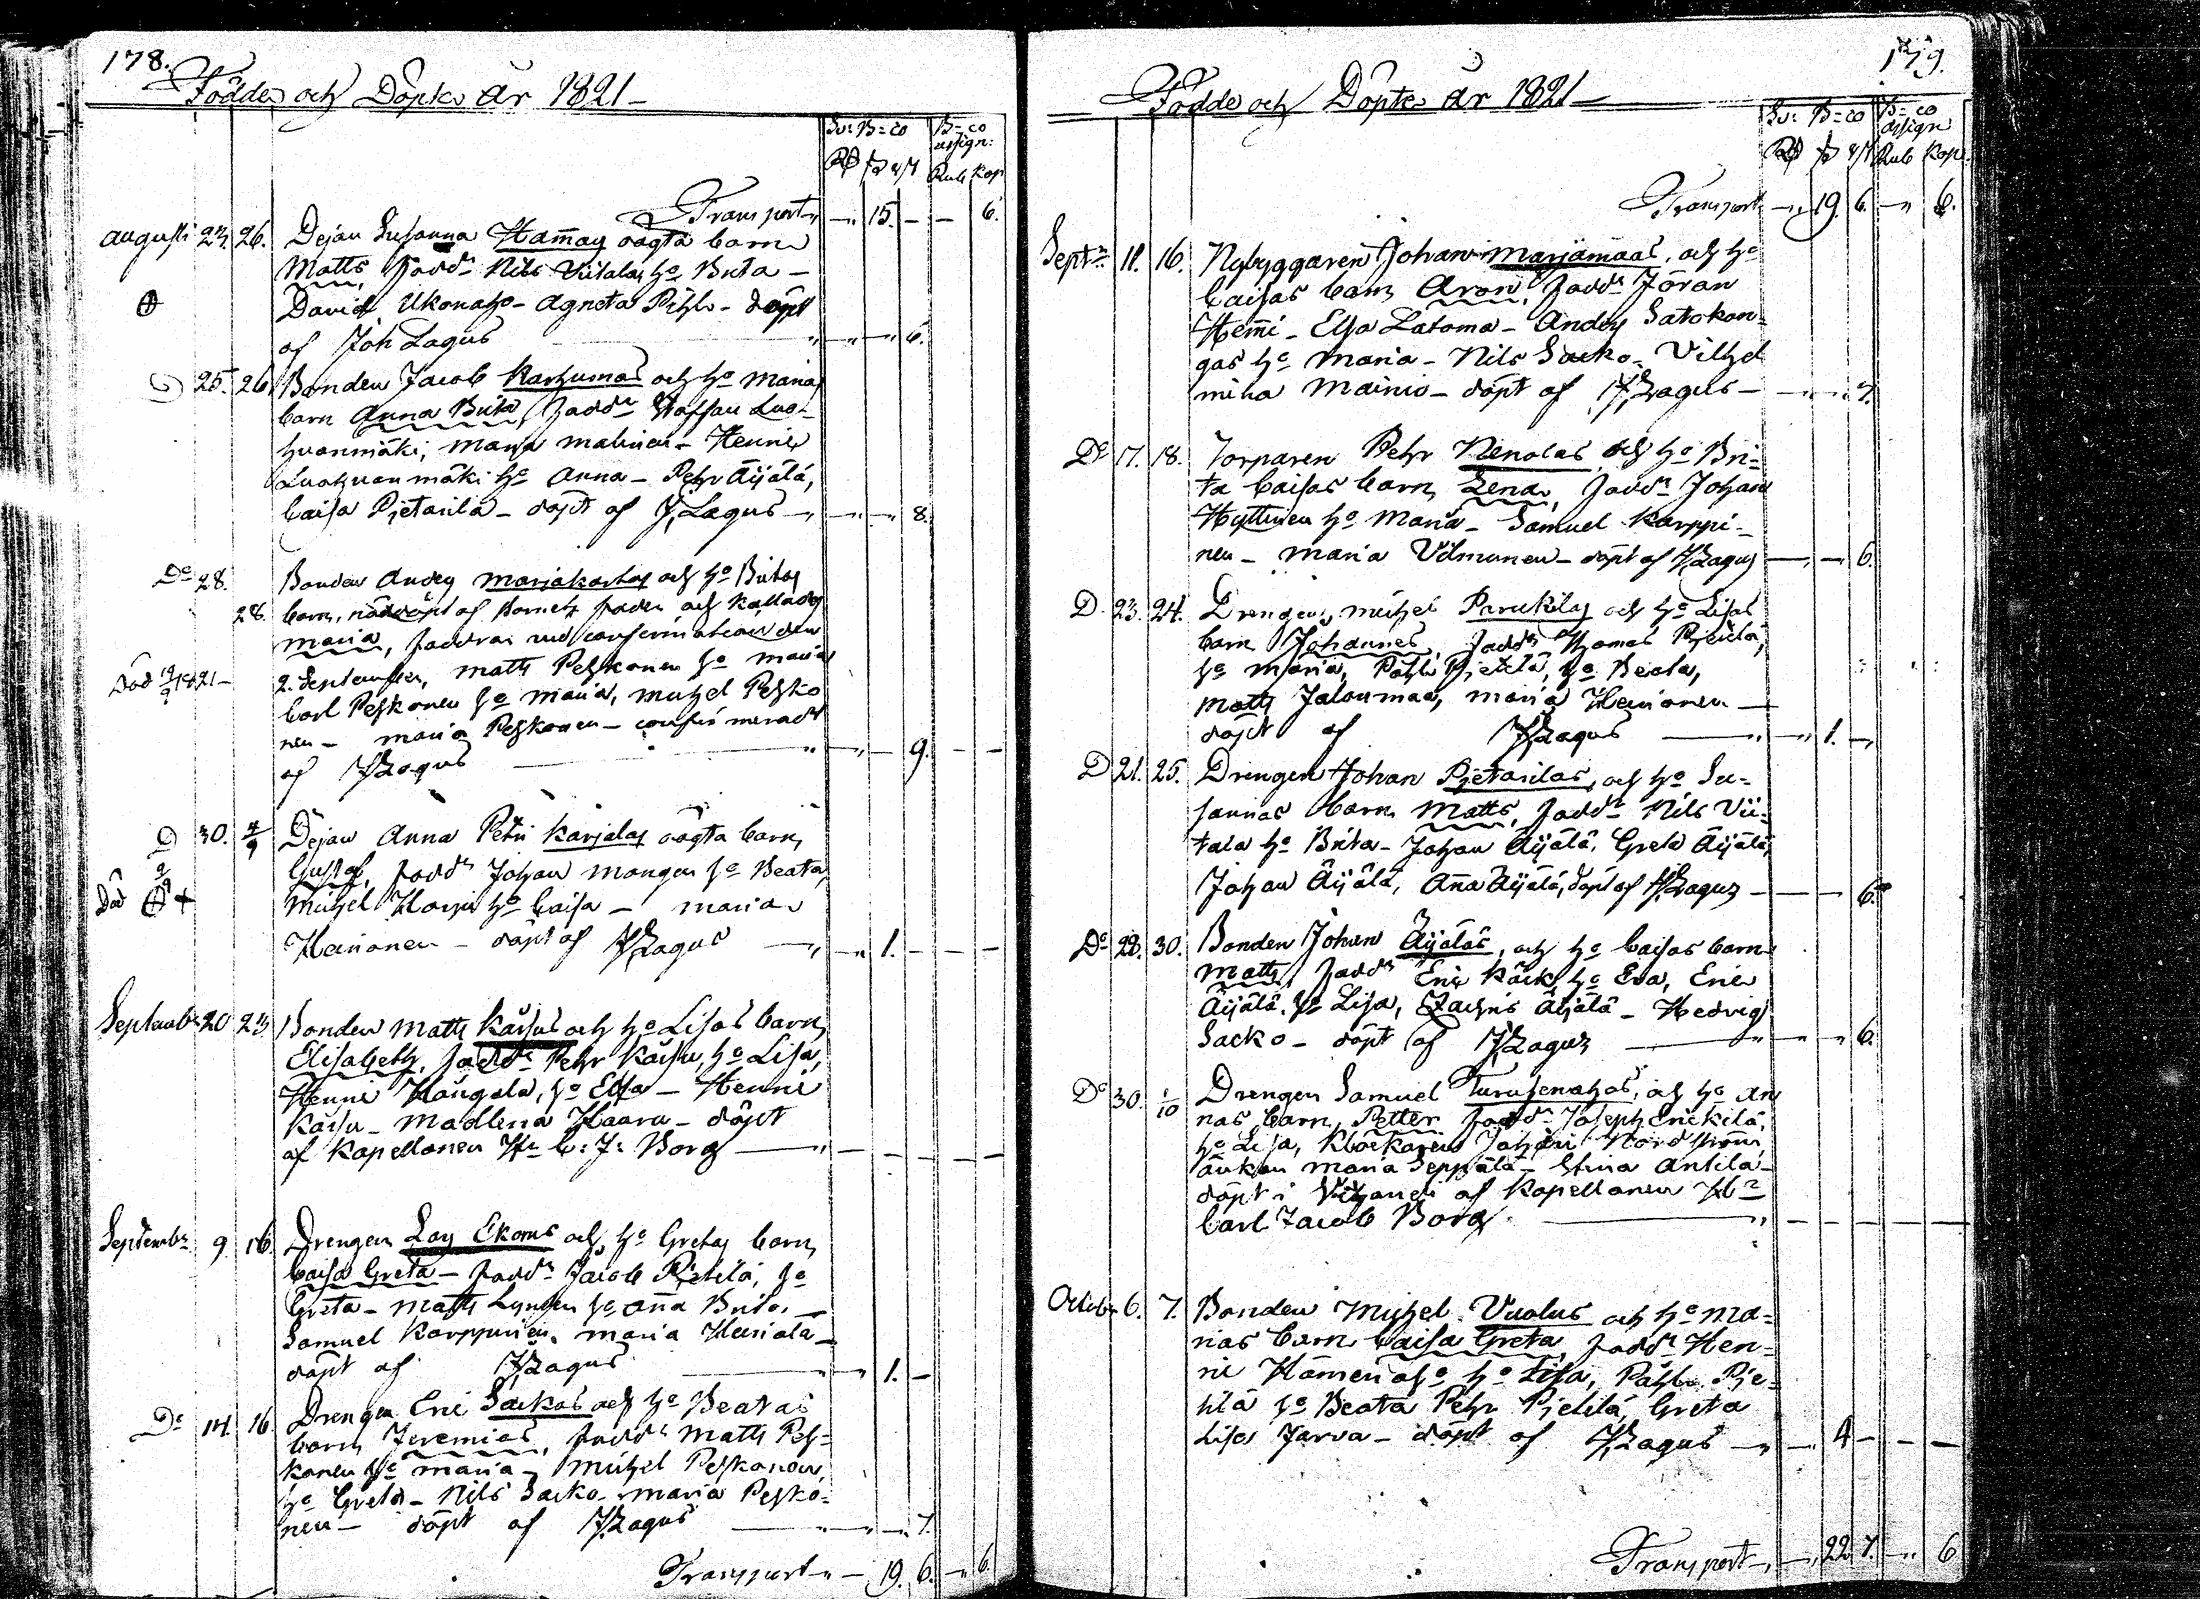 178.
Födde och Döpte År 1821 –
Sv: B=co B=co assign:
Rd s r/s Rub Kop
Transport – " 15. – – 6.
Augusti 23. 26. Dejan Susanna Hamay oägta barn
Matts, Fadd:r Nils Viitala, h:o Brita –
David Ukonaho – Agneta Pihl – döpt
af Joh Lagus 6.
D 25. 26. Bonden Jacob Karhumaas och h:o Maria
barn Anna Brita, Fadd:r Staffan Luo-
huanmäki, Maria Malinen – Henric
Luohuanmäki h:o Anna – Pehr Äijälä,
Caisa Pjetarila – döpt af J, Lagus – 8.
D:o 28. Bonden Anders Marjakartas och h:o Britas
28. barn, nöddöpt af Barnets fader och kallades
Maria, faddrar vid confirmationen den
Död 19/9 1821 – 2. September, Matts Peskonen h:o Maria
Carl Peskonen h:o Maria, Michel Pesko
nen – Maria Peskonen – confirmeradt
af J Lagus 9. – –
D 30. 2/9 Dejan Anna Petri Karjalas oägta barn,
Gustaf, Fadd:r Johan Mangen h:o Beata,
Död Michel Harju h:o Caisa – Maria
Heinonen – döpt af J Lagus – 1. – – –
September 20 23 Bonden Matts Käisus och h:o Lisas barn,
Elisabeth, Fadd:r Pehr Käisu, h:o Lisa,
Henric Kängala, h:o Elsa – Henric
Käisu – Madlena Haara – döpt
af Kapellanen Hr C: J: Borg –
September 9 16. Drengen Lars Ekoms och h:o Gretas barn,
Caisa Greta – Fadd:r Jacob Pjetilä, h:o
Greta – Matts Lyngen h:o Anna Brita –
Samuel Karppinen, Maria Heinola –
döpt af J Lagus 1. –
D:o 14. 16. Drengen Eric Sackos och h:o Beatas
barn Jeremias, Fadd:r Matts Pes-
konen h:o Maria – Michel Peskonen,
h:o Greta – Nils Sacko – Maria Pesko-
nen – döpt af J Lagus 7.
Transport " – 19. 6. – " 6.
179.
Födde och Döpte År 1821 –
Sv: B=co B=co assign
Rd s r/s Rub Kop.
Transport – " 19. 6. – " 6.
Sept:r 11. 16. Nybyggaren Johan Marjamaas, och h:o
Caisas barn Aron, Fadd:r Jöran
Hemmi – Elsa Latoma – Anders Satokan-
gas h:o Maria – Nils Sacko – Vilhel
mina Mainio – döpt af J Lagus – 7.
D:o 17. 18. Torparen Pehr Nenolas och h:o Bri-
ta Caisas barn, Lena, Fadd:r Johan
Hyttinen h:o Maria – Samuel Karppi-
nen – Maria Vilmunen – döpt af J Lagus – 6.
D. 23. 24. Drengen Michel Parukilas och h:o Lisas
barn Johannes, Fadd:r Thomas Pjetilä,
h:o Maria, Påhl Pjetilä, h:o Beata,
Matts Jalonmaa, Maria Heinonen –
döpt af J Lagus – 1. –
D 21. 25. Drengen Johan Pjetarilas, och h:o Su-
sannas barn Matts, Fadd:r Nils Vii-
tala h:o Brita – Johan Äijälä, Greta Äijälä,
Johan Äijälä, Anna Äijälä, döpt af J Lagus – 6.
D:o 28. 30. Bonden Johan Äijäläs, och h:o Caisas barn
Matts, Fadd:r Eric Käck, h:o Eva, Eric
Äijälä, h:o Lisa, Zachris Äijälä – Hedvig
Sacko – döpt af J Lagus 6.
D:o 30. 1/10 Drengen Samuel Turusenahos, och h:o An
nas barn, Petter Fadd:r Joseph Erickilä,
h:o Lisa, Klockaren Johan Nordström,
änkan Maria Seppälä – Stina Antila –
döpt i Vihandi af Kapellanen Hr
Carl Jacob Borg –
October 6. 7. Bonden Michel Vuolus och h:o Ma-
rias barn Caisa Greta, Fadd:r Hen-
ric h:o Lisa, Påhl Pje-
tilä h:o Beata Pehr Pjetilä, Greta
Lisa Jarva – döpt af J Lagus – 4 – – –
Transport – 22. 7. – " 6